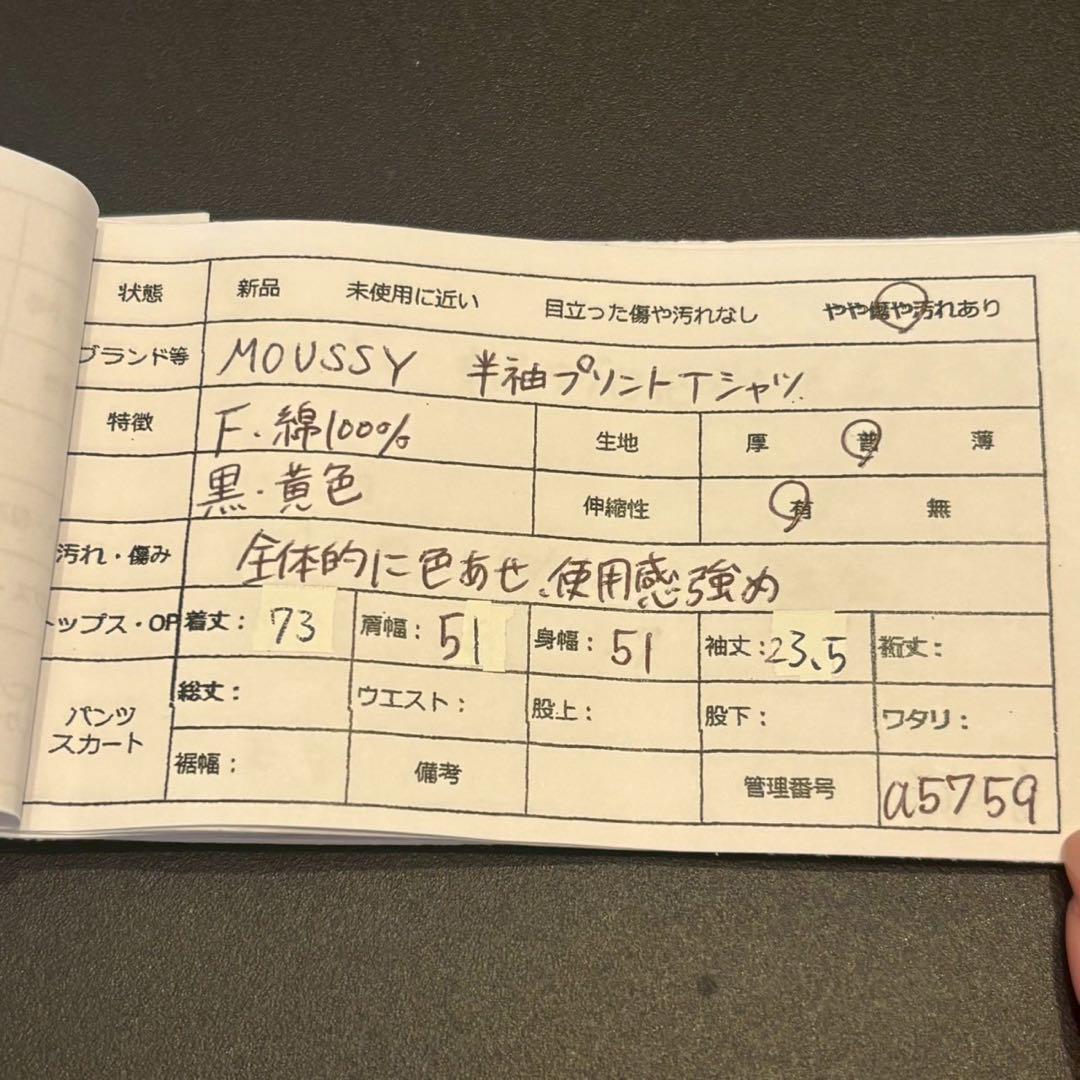 状態 新品 未使用に近い 目立った傷や汚れなし やや傷や汚れあり
ブランド等 MOUSSY 半袖プリントTシャツ
特徴 F.綿100% 生地 厚 普 薄
黒.黄色 伸縮性 有 無
汚れ・傷み 全体的に色あせ、使用感強め
トップス・OP 着丈: 73 肩幅: 51 身幅: 51 袖丈: 23.5 裄丈:
パンツ スカート 総丈: ウエスト: 股上: 股下: ワタリ:
裾幅: 備考 管理番号 a5759